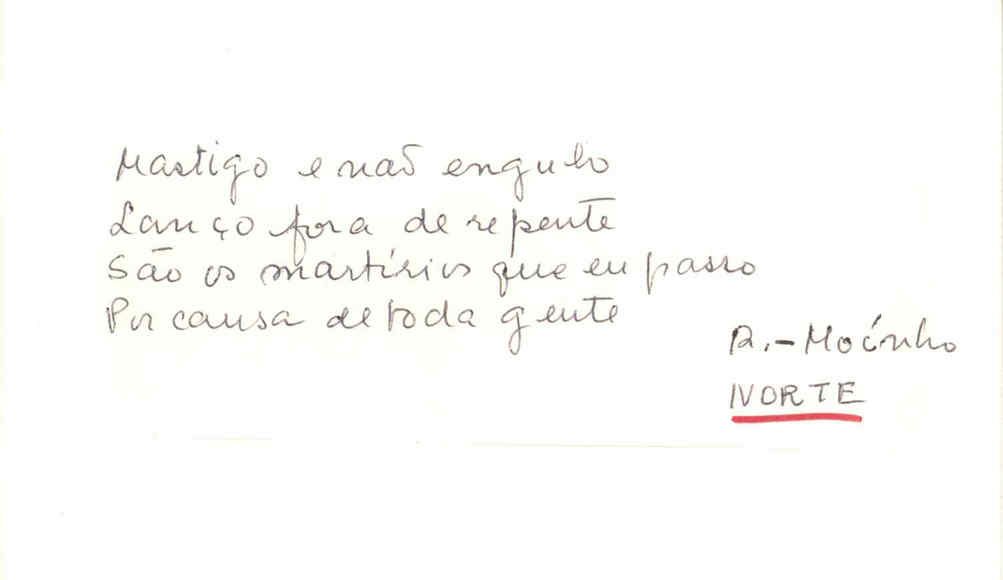 Mastigo e naõ engulo
Lanço fora de repente
São os martírios que eu passo
Por causa de toda gente
R.-Moínho
NORTE